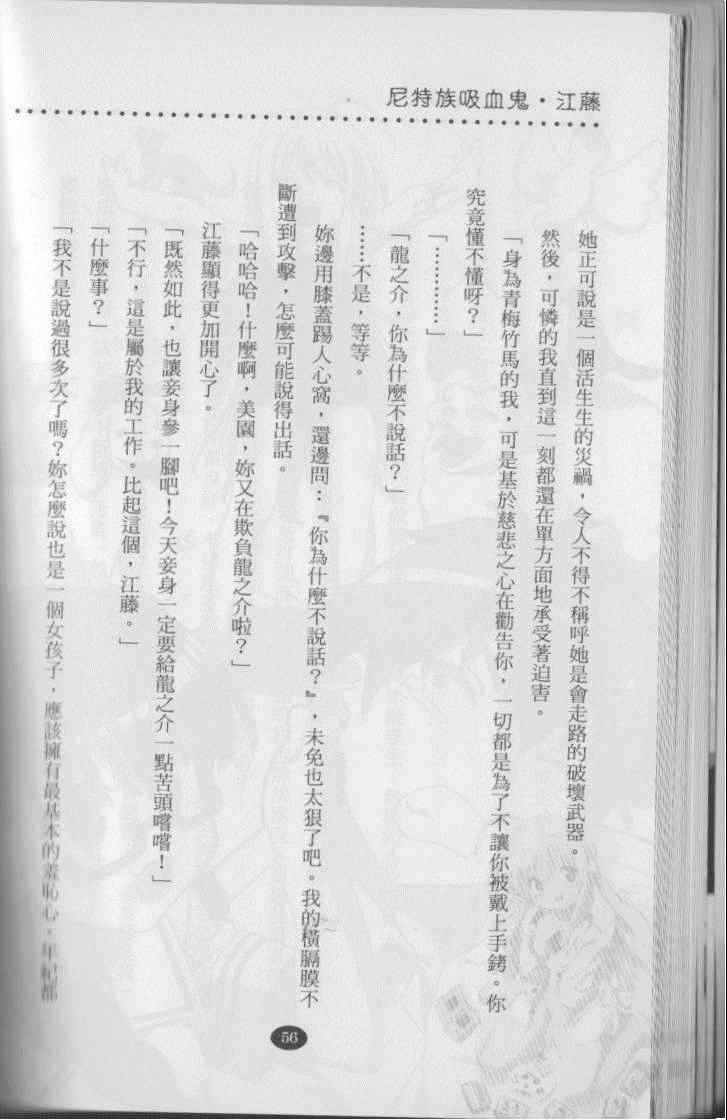 尼特族吸血鬼・江藤
她正可說是一個活生生的災禍，令人不得不稱呼她是會走路的破壞武器。
然後，可憐的我直到這一刻都還在單方面地承受著迫害。
「身為青梅竹馬的我，可是基於慈悲之心在勸告你，一切都是為了不讓你被戴上手銬。你
究竟懂不懂呀？」
「…………」
「龍之介，你為什麼不說話？」
……不是，等等。
妳邊用膝蓋踢人心窩，還邊問：『你為什麼不說話？』，未免也太狠了吧。我的橫膈膜不
斷遭到攻擊，怎麼可能說得出話。
「哈哈哈！什麼啊，美園，妳又在欺負龍之介啦？」
江藤顯得更加開心了。
「既然如此，也讓妾身參一腳吧！今天妾身一定要給龍之介一點苦頭嚐嚐！」
「不行，這是屬於我的工作。比起這個，江藤。」
「什麼事？」
「我不是說過很多次了嗎？妳怎麼說也是一個女孩子，應該擁有最基本的羞恥心。年紀都
56